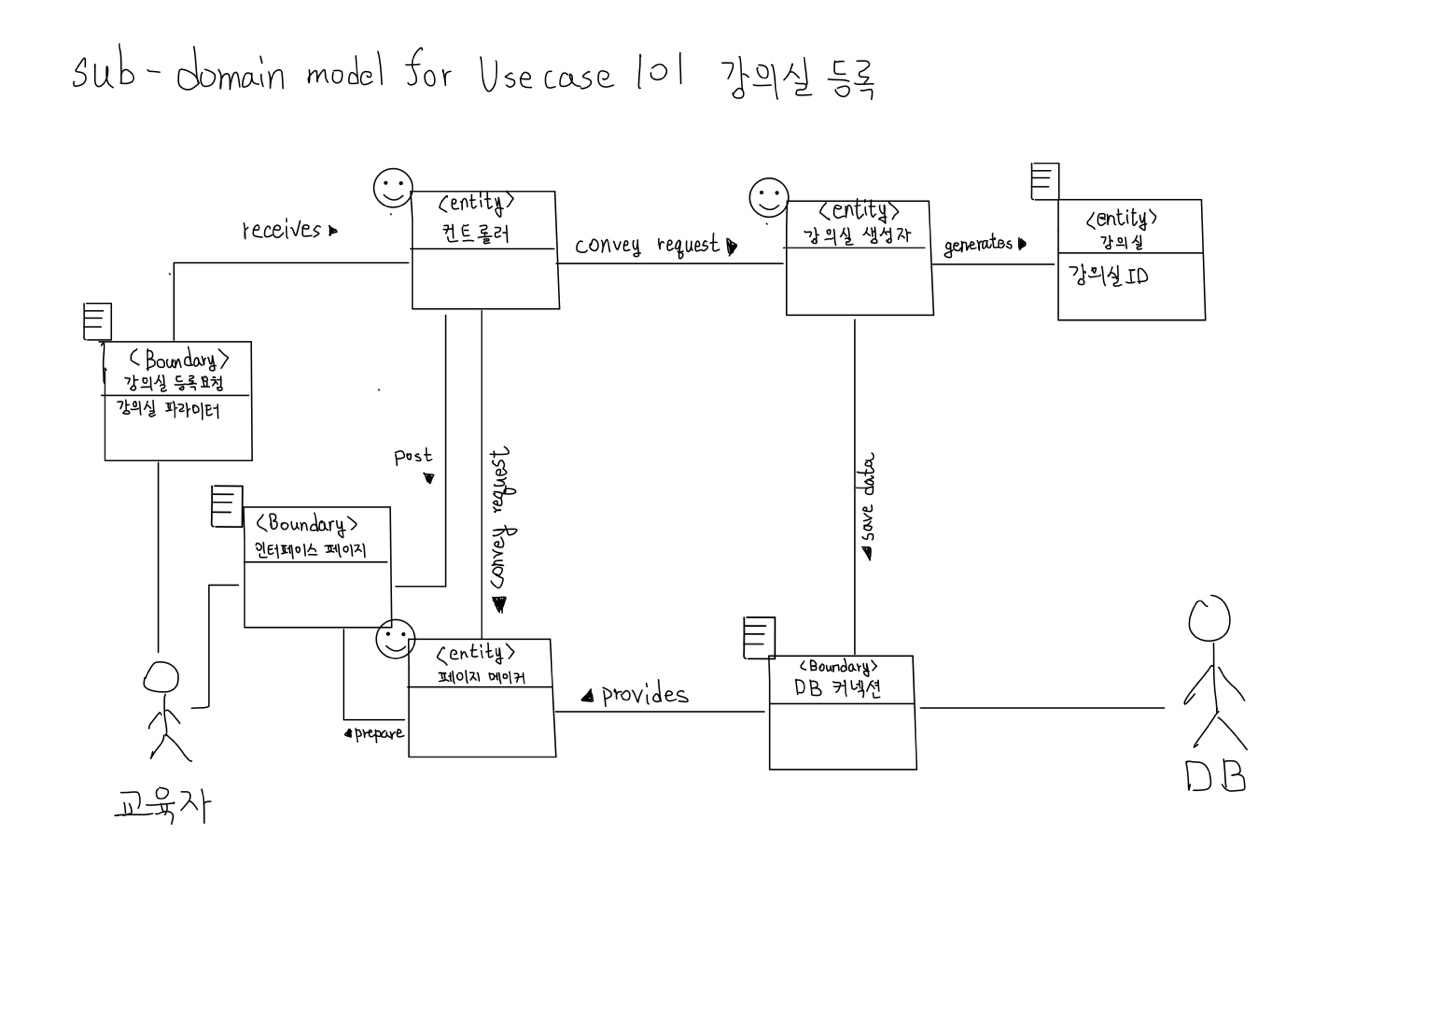 sub-domain model for Use case 101 강의실 등록
receives ▶
<entity>
컨트롤러
convey request ▶
<entity>
강의실 생성자
generates ▶
<entity>
강의실
강의실 ID
<Boundary>
강의실 등록요청
강의실 파라미터
post
▼
convey request
▼
save data
▼
<Boundary>
인터페이스 페이지
<entity>
페이지 메이커
◀ prepare
◀ provides
<Boundary>
DB 커넥션
교육자
DB